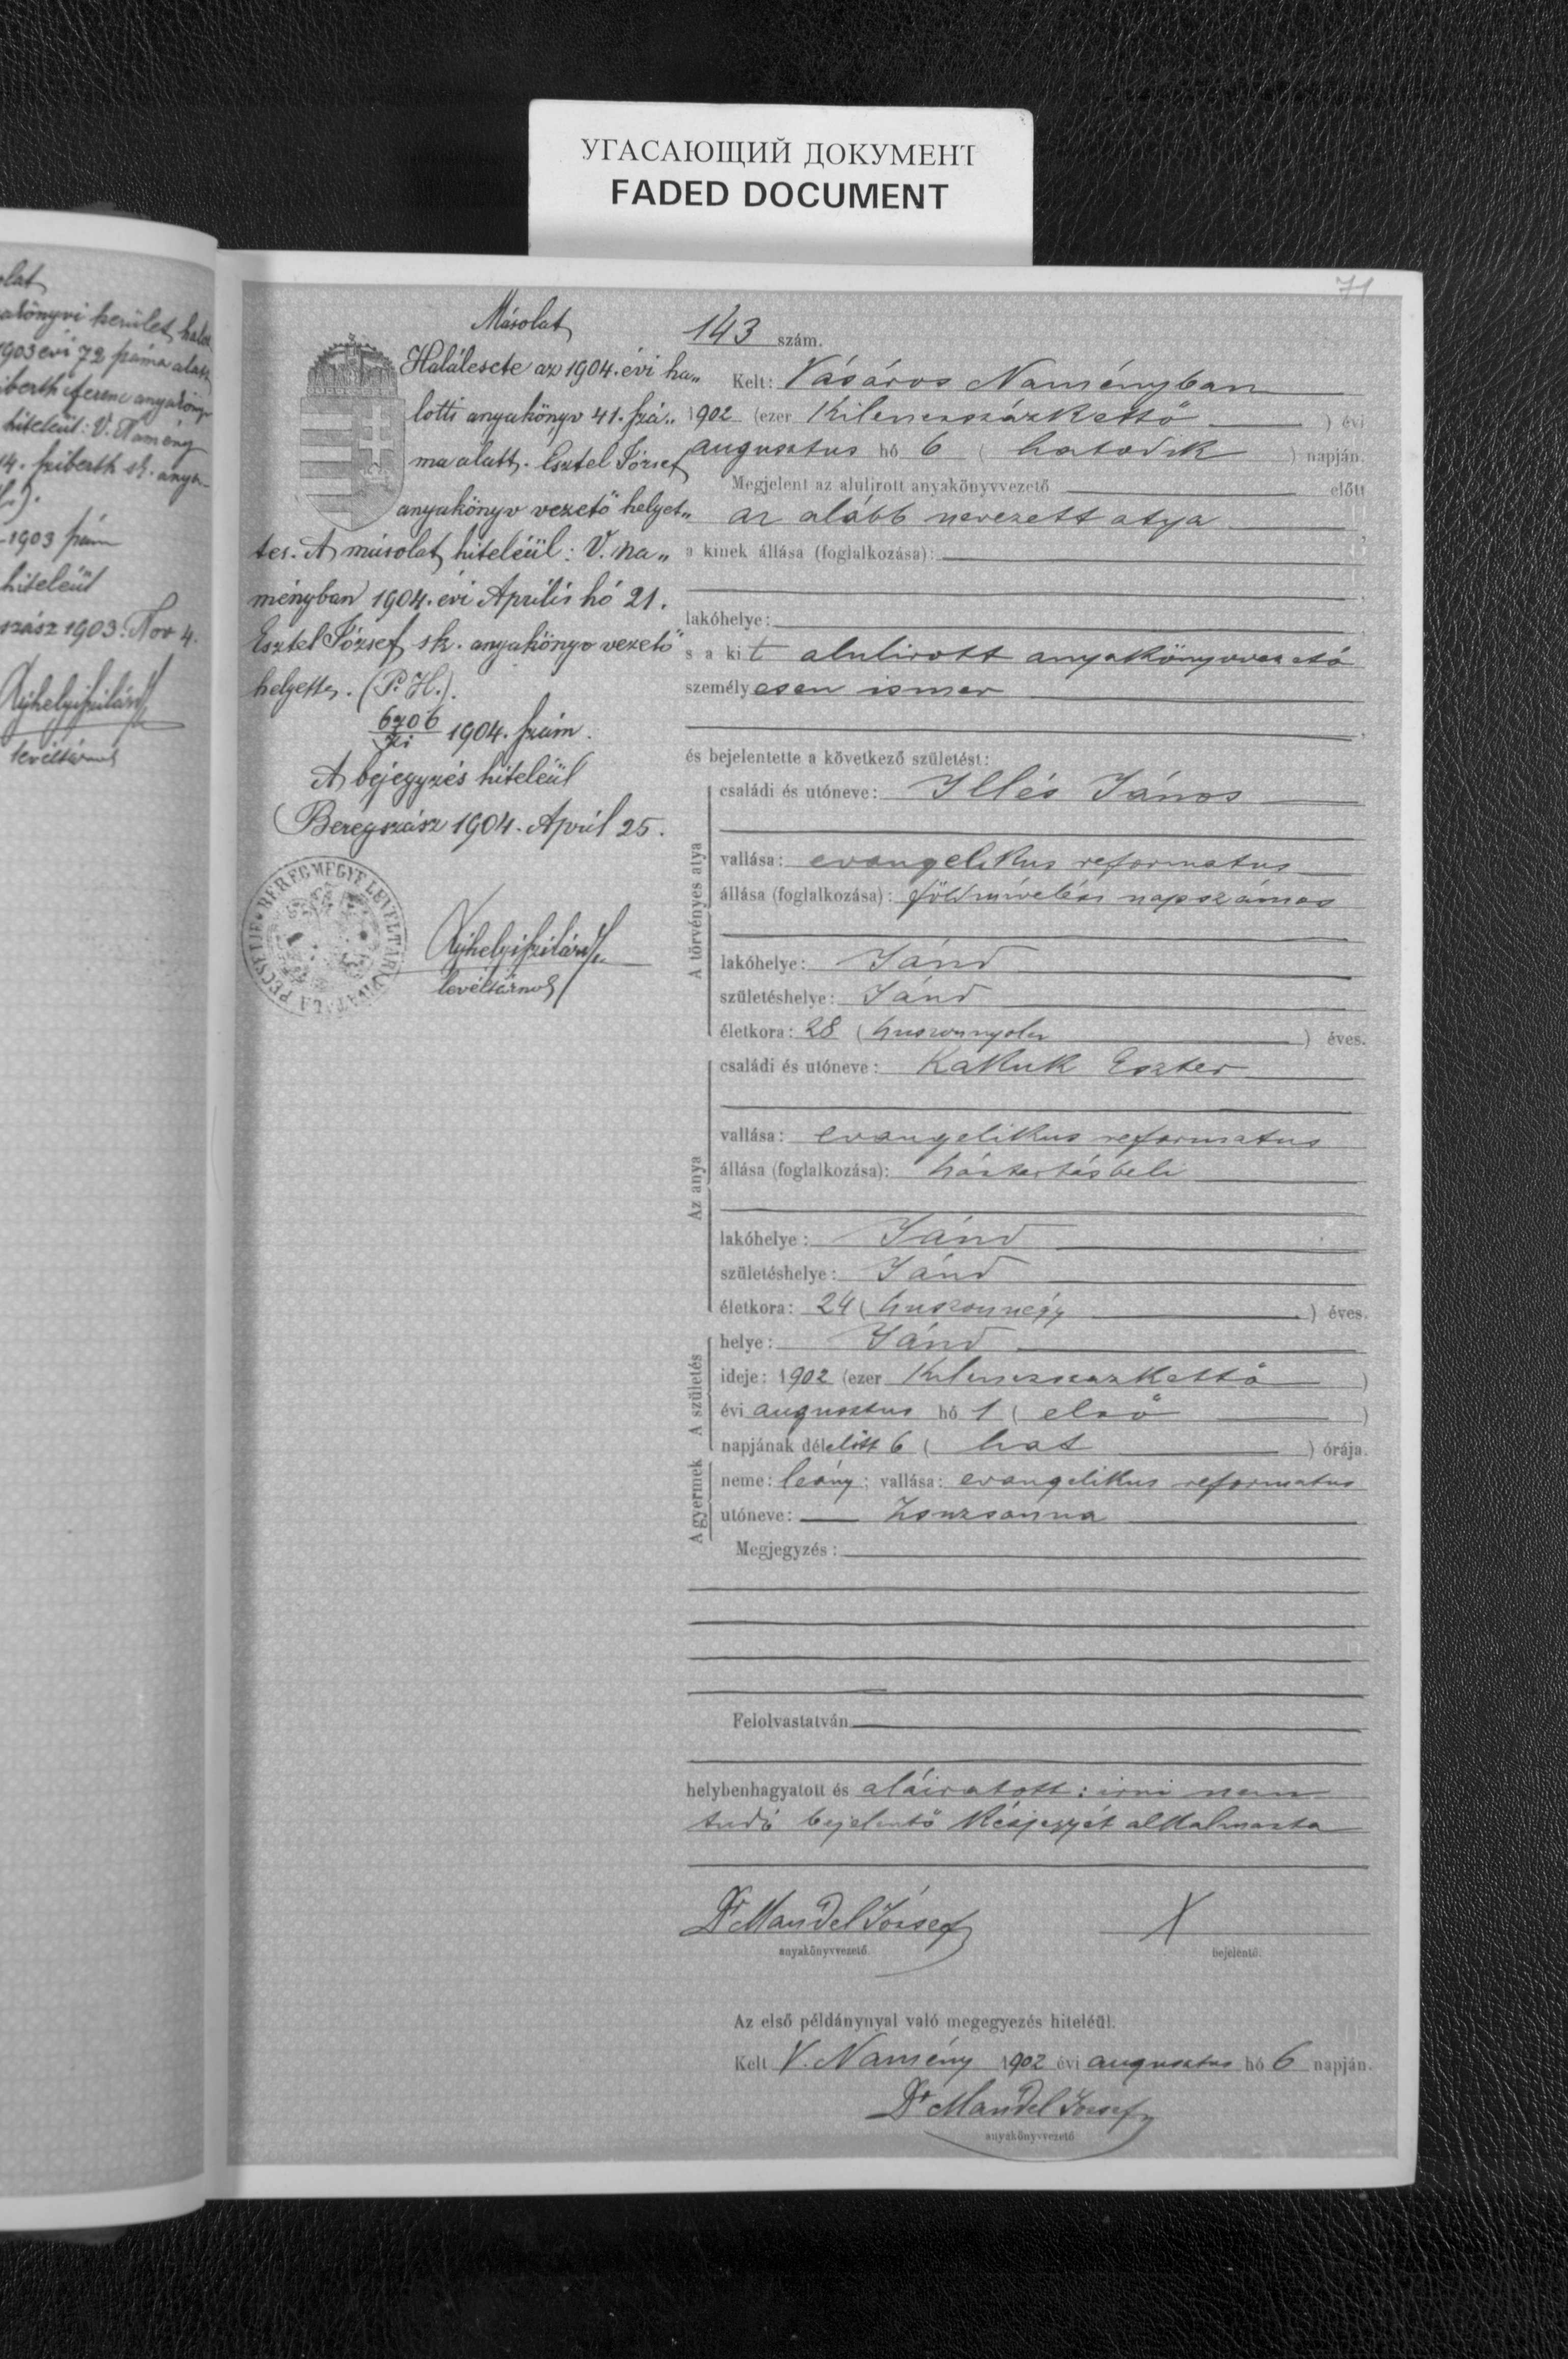 УГАСАЮЩИЙ ДОКУМЕНТ
FADED DOCUMENT
71
olat
akönyvi kerület halot
1903 évi 72 száma alatt
hiteleül: V. Namény
-1903 szám
hiteleül
szász 1903. Nov 4.
Ujhelyi Szilárd
levéltárnok
Másolat
Halálesete az 1904. évi ha„
lotti anyakönyv 41. szá„
ma alatt. Esztel József
anyakönyv vezető helyet„
tes. A másolat hiteléül: V. Na„
ményban 1904. évi Április hó 21.
Esztel József sk. anyakönyv vezető
helyettes. (P. H.).
1904. szám.
A bejegyzés hiteléül
Beregszász 1904. Apríl 25.
BEREGMEGYE LEVÉLTÁRI
Ujhelyi Szilárd
levéltárnok
143 szám.
Kelt: Vásáros Naményban
1902 (ezer kilenczszázkettő ) évi
augusztus hó 6 ( hatodik ) napján.
Megjelent az alulirott anyakönyvvezető előtt
az alább nevezett atya ,
a kinek állása (foglalkozása):
lakóhelye:
s a kit alulirott anyakönyvvezető
személyesen ismer
és bejelentette a következő születést:
A törvényes atya
családi és utóneve: Illés János
vallása: evangelikus reformatus
állása (foglalkozása): földmivelési napszámos
lakóhelye: Jánd
születéshelye: Jánd
életkora: 28 ( huszonnyolcz ) éves.
Az anya
családi és utóneve: Kakuk Eszter
vallása: evangelikus reformatus
állása (foglalkozása): háztartásbeli
lakóhelye: Jánd
születéshelye: Jánd
életkora: 24 ( huszonnégy ) éves.
A születés
helye: Jánd
ideje: 1902 (ezer kilenczszázkettő )
évi augusztus hó 1 ( első )
napjának délelőtt 6 ( hat ) órája.
A gyermek
neme: leány; vallása: evangelikus reformatus
utóneve: Zsuzsanna
Megjegyzés:
Felolvastatván
helybenhagyatott és aláiratott: irni nem
tudó bejelentő kézjegyét alkalmazta
Dr Mandel József X
anyakönyvvezető. bejelentő.
Az első példánynyal való megegyezés hiteléül.
Kelt V. Namény 1902 évi augusztus hó 6 napján.
Dr Mandel József
anyakönyvvezető